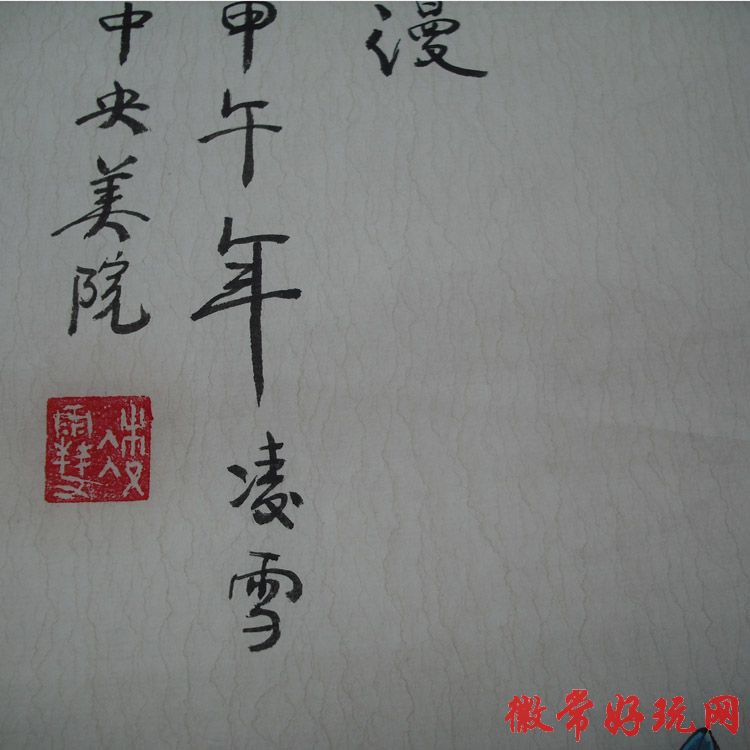 漫
甲午年凌雪
中央美院
凌雪
徽常好玩网